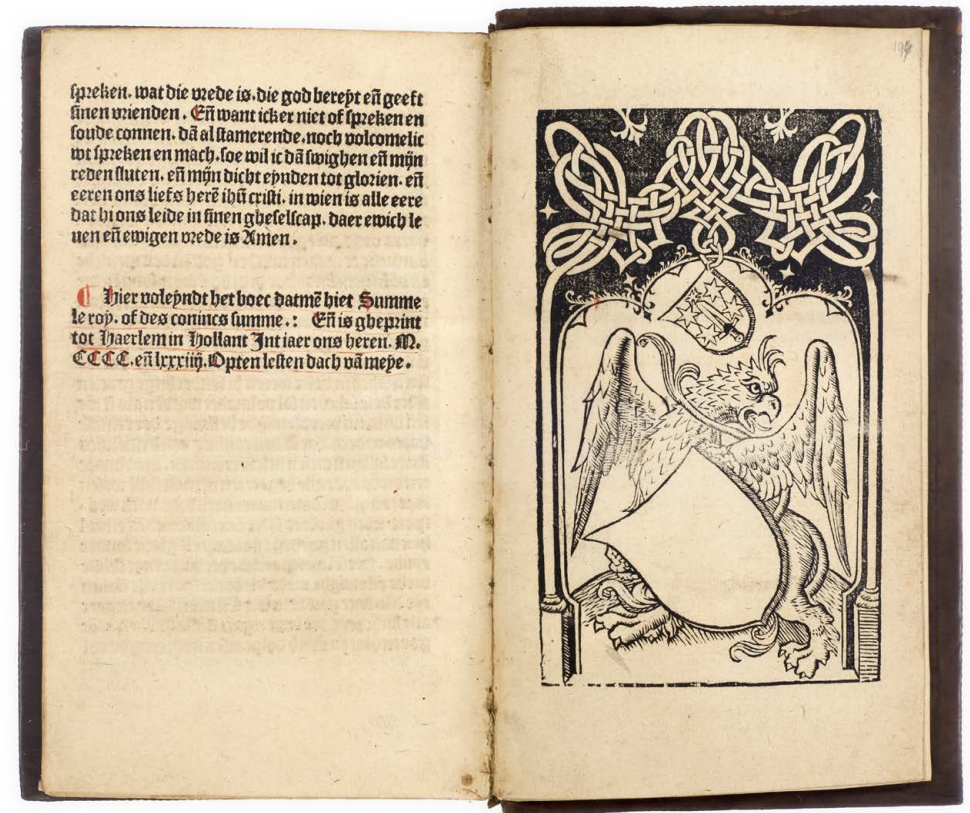 spreken. wat die vrede is. die god bereyt eñ geeft
sinen vrienden. Eñ want icker niet of spreken en
soude connen. dā al stamerende. noch volcomelic
wt spreken en mach. soe wil ic dā swighen eñ mijn
reden sluten. eñ mijn dicht eynden tot glorien. eñ
eeren ons liefs herē ihū cristi. in wien is alle eere
dat hi ons leide in sinen gheselscap. daer ewich le
uen eñ ewigen vrede is Amen.
¶ Hier voleyndt het boec datmē hiet Summe
le roy. of des conincs summe.: Eñ is gheprint
tot Haerlem in Hollant Int iaer ons heren. M.
CCCC. eñ lxxxiiij. Opten lesten dach vā meye.